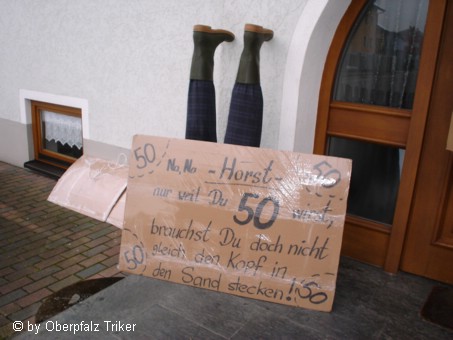 50
Na, Na - Horst -
50
nur weil Du 50 wirst,
brauchst Du doch nicht
gleich den Kopf in
den Sand stecken!
50
50
© by Oberpfalz Triker